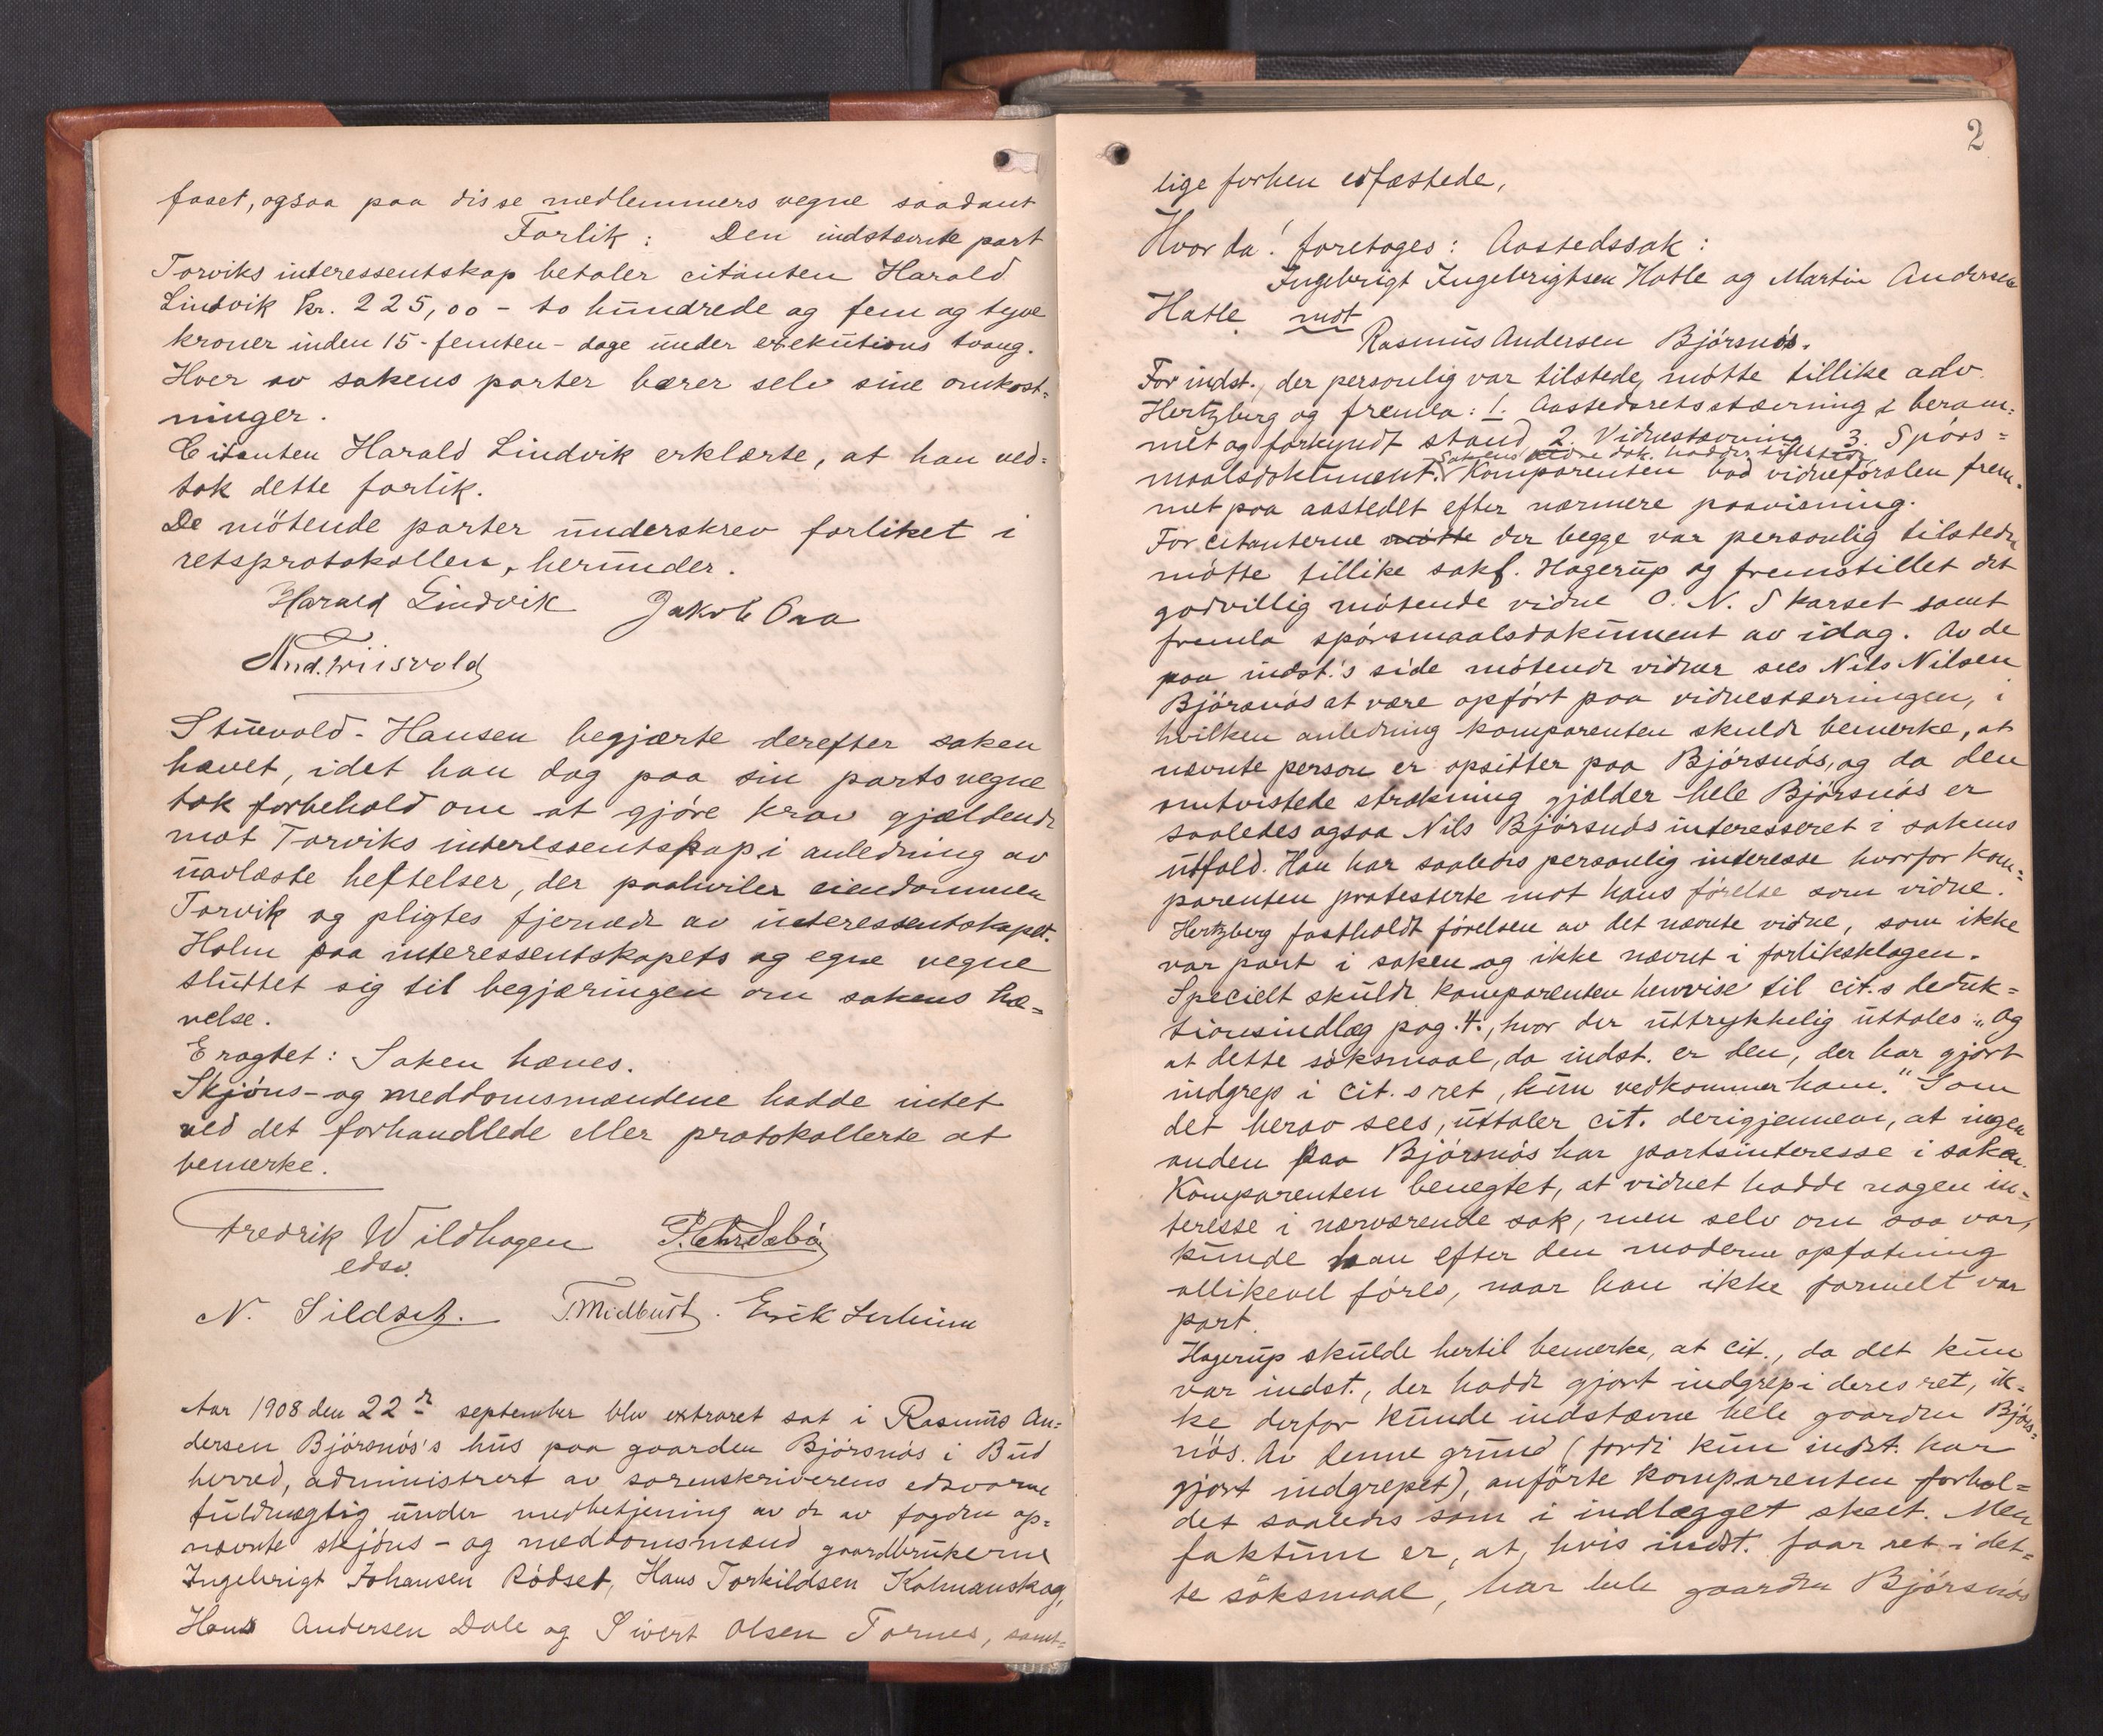 faset, ogsaa paa disse medlemmers vegne saadant
Forlik: Den indstævnte part
Torviks interessentskap betaler citanten Harald
Lindvik kr. 225,00 - to hundrede og fem og tyve
kroner inden 15 - femten - dage under exekutions tvang.
Hver av sakens parter bærer selv sine omkost=
ninger.
Citanten Harald Lindvik erklærte, at han ved=
tok dette forlik.
De mötende parter underskrev forliket i
retsprotokollen, herunder.
Harald Lindvik Jakob Oaa
And. Friisvold
Stuevold-Hansen begjærte derefter saken
hævet, idet han dog paa sin parts vegne
tok forbehold om at gjöre krav gjældende
mot Torviks interessentskap i anledning av
uavlöste heftelser, der paahviler eiendommen
Torvik og pligtes fjernede av interessentskapet.
Holm paa interessentskapets og egne vegne
sluttet sig til begjæringen om sakens hæ=
velse.
Eragtet: Saken hæves.
Skjöns- og meddomsmændene hadde intet
ved det forhandlede eller protokollerte at
bemerke.
Fredrik Wildhagen P. Chr. Sæbö
edsv.
N. Sildset. T. Midbust. Erik
Aar 1908 den 22de september blev extraret sat i Rasmus An=
dersen Björsnös's hus paa gaarden Björsnös i Bud
herred, administrert av sorenskriverens edsvorne
fuldmægtig under medbetjening av de av fogden op=
nævnte skjöns- og meddomsmænd gaardbrukerne
Ingebrigt Johansen Rödset, Hans Torkildsen Kolmanskog,
Hans Andersen Dale og Sivert Olsen Tornes, samt=
2
lige forhen edfæstede,
Hvor da! foretoges: Aastedssak:
Ingebrigt Ingebrigtsen Hatle og Martin Andersen
Hatle mot
Rasmus Andersen Björsnös.
For indst., der personlig var tilstede, mötte tillike adv.
Hertzberg og fremla: 1. Aastedsretsstævning i beram=
met og forkyndt stand 2. Vidnestævning 3. Spörs=
Sakens ældre dok. hadde tilstede
maalsdokument. Komparenten bad vidneförslen frem=
met paa aastedet efter nærmere paavisning.
For citanterne mötte der begge var personlig tilstede
mötte tillike sakf. Hagerup og fremstillet det
godvillig mötende vidne O. N. Skarset samt
fremla spörsmaalsdokument av idag. Av de
paa indst.'s side mötende vidner sees Nils Nilsen
Björsnös at være opfört paa vidnestævningen, i
hvilken anledning komparenten skulde bemerke, at
nævnte person er opsitter paa Björsnös, og da den
omtvistede strækning gjælder hele Björsnös er
saaledes ogsaa Nils Björsnös interesseret i sakens
utfald. Han har saaledes personlig interesse hvorfor kom=
parenten protesterte mot hans förelse som vidne.
Hertzberg fastholdt förelsen av det nævnte vidne, som ikke
var part i saken og ikke nævnt i forliksklagen.
Specielt skulde komparenten henvise til cit.s deduk=
tionsindlæg pag. 4., hvor der uttrykkelig uttales: „Og
at dette söksmaal, da indst. er den, der har gjort
indgrep i cit.s ret, kun vedkommer ham." Som
det herav sees, uttaler cit. derigjennem, at ingen
anden paa Björsnös har partsinteresse i saken.
Komparenten benegtet, at vidnet hadde nogen in=
teresse i nærværende sak, men selv om saa var,
kunde han efter den moderne opfatning
allikevel föres, naar han ikke formelt var
part.
Hagerup skulde hertil bemerke, at cit., da det kun
var indst., der hadde gjort indgrep i deres ret, ik=
ke derfor kunde indstævne hele gaarden Björs=
nös. Av denne grund (fordi kun indst. har
gjort indgrepet), anförte komparenten forhol=
det saaledes som i indlægget skeet. Men
faktum er, at, hvis indst. faar ret i det=
te söksmaal, har hele gaarden Björsnös